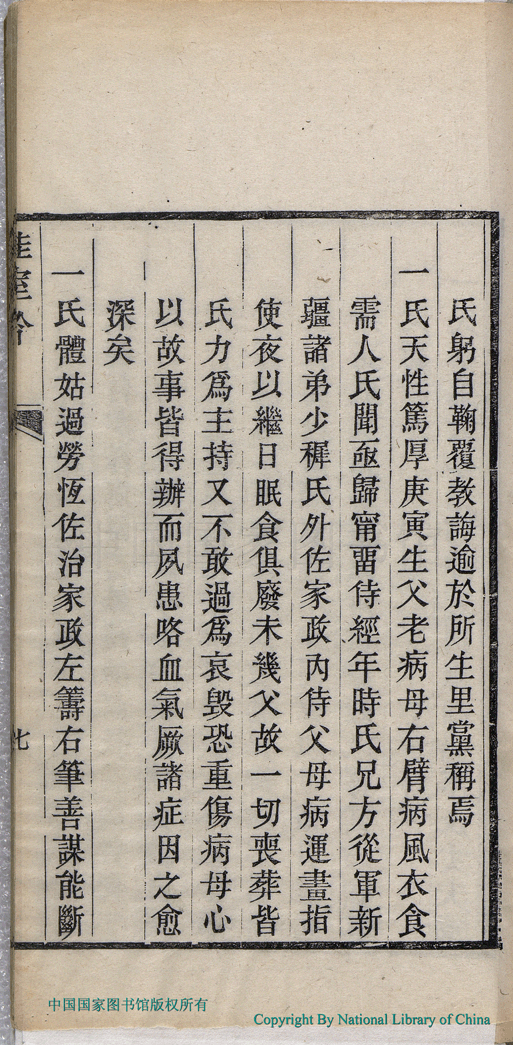 氏躬自鞠覆教誨逾於所生里黨稱焉
一氏天性篤厚庚寅生父老病母右臂病風衣食
需人氏聞亟歸甯畱侍經年時氏兄方從軍新
疆諸弟少穉氏外佐家政內侍父母病運晝指
使夜以繼日眠食俱廢未幾父故一切喪葬皆
氏力爲主持又不敢過爲哀毀恐重傷病母心
以故事皆得辦而夙患咯血氣厥諸症因之愈
深矣
一氏體姑過勞恆佐治家政左籌右筆善謀能斷
七
中国国家图书馆版权所有
Copyright By National Library of China